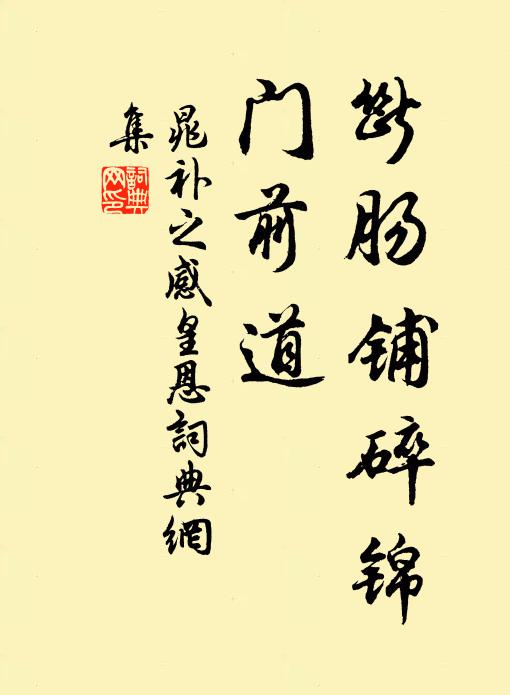 断肠铺碎锦
门前道
晁补之感皇恩词典網
集
詞典網印